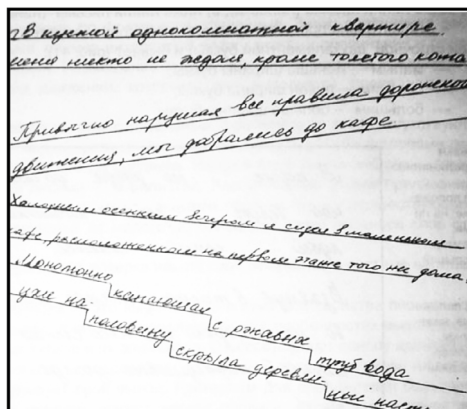 В пустой однокомнатной квартире
меня никто не ждал, кроме толстого кота
Привычно нарушая все правила дорожной
движения, мы добрались до кафе
Холодным осенним вечером я сидел в маленьком
кафе, расположенном на первом этаже того же дома.
Монотонно капающая с ржавых труб вода
уже на-половину скрыла деревян-ный насти